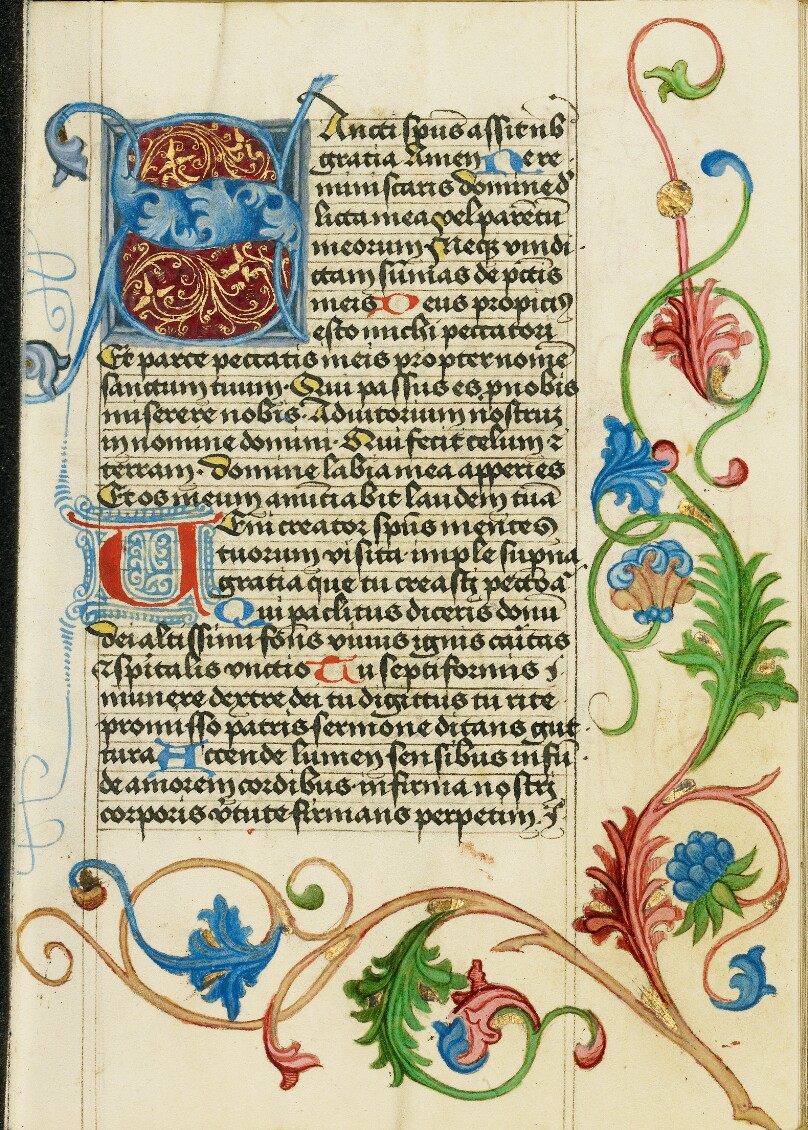 Sancti spūs assit nb
gratia Amen Nere
miniscaris domine d'
licta mea vel parētū
meorum Neqȝ vindi
ctam sumas de pctis
meis Deus propiciꝰ
esto michi peccatori
Et parce peccatis meis propter nomē
sanctum tuum · Qui passus es p nobis
miserere nobis · Adiutorium nostruȝ
in nomine domini · Qui fecit celum ⁊
terram · Domine labia mea apperies
Et os meum anūtiabit laudem tuā
Veni creator spūs mentes
tuorum visita imple supna
gratia que tu creasti pectoā
Qui paclitus diceris donū
dei altissimi fōns vivus ignis caītas
⁊ spitalis vnctio Tu septiformis ı
munere dextre dei tu digittus tu rite
promisso patris sermone ditans gut
tura Accende lumen sensibus infū
de amorem cordibus infirma nostri
corporis v̄tute firmans perpetim